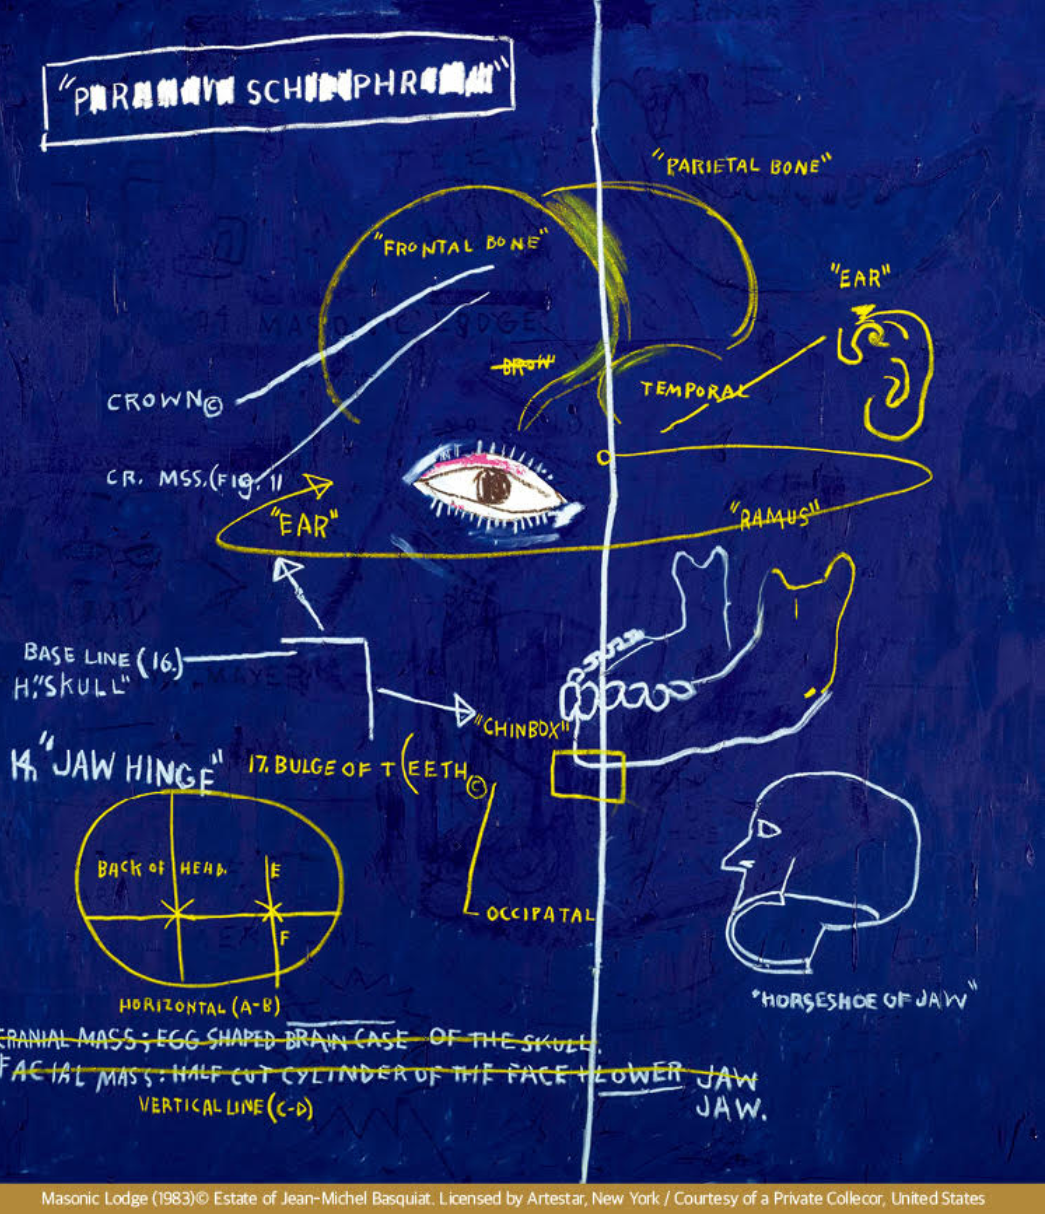 "PARANOIA SCHIZOPHRENIA"
"PARIETAL BONE"
"FRONTAL BONE"
"EAR"
BROW
TEMPORAL
CROWN©
CR. MSS.(FIG. 1)
"EAR"
"RAMUS"
BASE LINE (16.)
H."SKULL"
"CHINBOX"
14. "JAW HINGE"
17. BULGE OF T(EETH©
BACK OF HEAD.
E
F
OCCIPATAL
HORIZONTAL (A-B)
"HORSESHOE OF JAW"
CRANIAL MASS; EGG SHAPED BRAIN CASE OF THE SKULL
FACIAL MASS: HALF CUT CYLINDER OF THE FACE + LOWER JAW
JAW.
VERTICAL LINE (C-D)
Masonic Lodge (1983)© Estate of Jean-Michel Basquiat. Licensed by Artestar, New York / Courtesy of a Private Collecor, United States